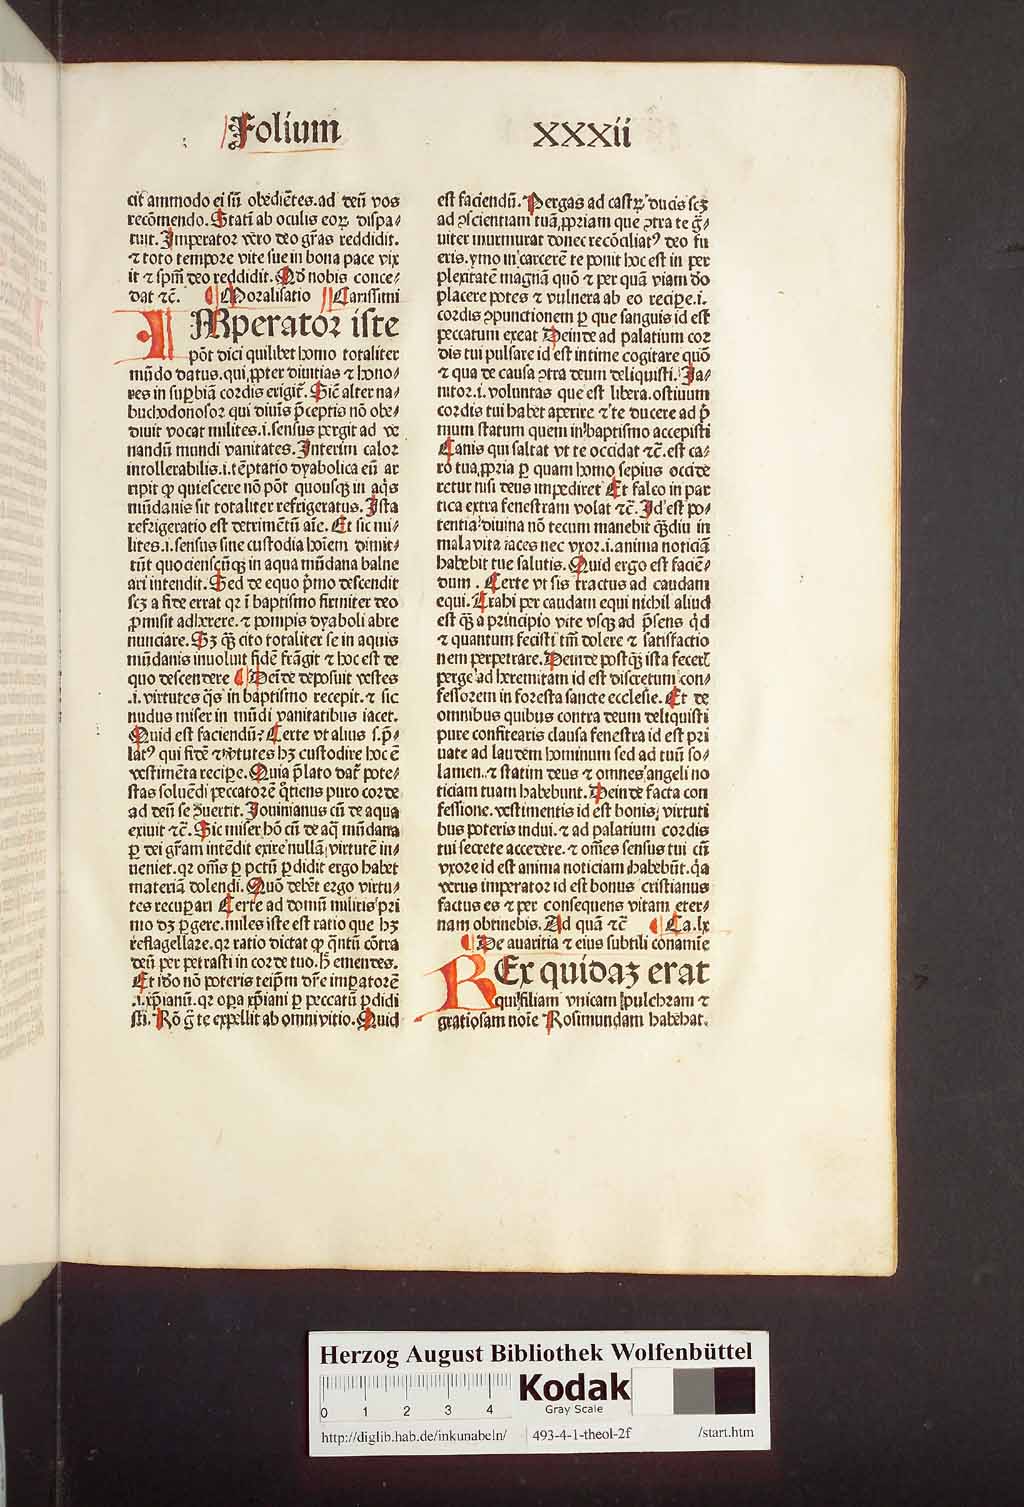 Folium XXXii
cit ammodo ei sūt obediētes. ad deū vos
recōmendo. Statī ab oculis eoꝝ dispa⸗
ruit. Imperator vero deo grās reddidit.
⁊ toto tempore vite sue in bona pace vix
it ⁊ spm̄ deo reddidit. Qd̄ nobis conce⸗
dat ⁊c̄. Moralisatio Carissimi
IMperator iste
pōt dici quilibet homo totaliter
mūdo datus. qui ꝓpter diuitias ⁊ hono⸗
res in suꝑbiā cordis erigit᷑. Sic̄ alter na⸗
buchodonosor qui diuīs p̄ceptis nō obe⸗
diuit vocat milites .i. sensus pergit ad ve
nandū mundi vanitates. Interim calor
intollerabilis .i. tēptatio dyabolica eū ar
ripit ꝙ quiescere nō pōt quousqꝫ in aq̄s
mūdanis sit totaliter refrigeratus. Ista
refrigeratio est detrimētū aīe. Et sic mi⸗
lites .i. sensus sine custodia hoīem dimit⸗
tūt quociēscūqꝫ in aqua mūdana balne
ari intendit. Sed de equo p̄mo descendit
scꝫ a fide errat qr ī baptismo firmiter deo
ꝓmisit adherere. ⁊ pompis dyaboli abre
nunciare. Sꝫ qꝫ cito totaliter se in aquis
mūdanis inuoluit fidē frāgit ⁊ hoc est de
quo descendere Deīde deposuit vestes
.i. virtutes q̄s in baptismo recepit. ⁊ sic
nudus miser in mūdi vanitatibus iacet.
Quid est faciendū? Certe vt alius s. p̄⸗
latꝰ qui fidē ⁊ v̓tutes hꝫ custodire hoc ē
vestimēta recipe. Quia p̄lato dat᷑ pote⸗
stas soluēdi peccatorē q̄tiens puro corde
ad deū se ꝯuertit. Iouinianus cū de aqua
exiuit ⁊c̄. Sic miser hō cū de aq̄ mūdana
ꝑ dei grām intēdit exire nullā virtutē in⸗
ueniet. qr om̄s ꝑ pctm̄ ꝑdidit ergo habet
materiā dolendi. Quō debēt ergo virtu⸗
tes recuꝑari Certe ad domū militis pri
mo dꝫ ꝑgere. miles iste est ratio que hꝫ
te flagellare. qr ratio dictat ꝙ q̄ntū cōtra
deū per petrasti in corde tuo. hꝰ emendes.
Et ideo nō poteris teip̄m dr̄e imꝑatorē
.i. xp̄ianū. qr oꝑa xp̄iani ꝑ peccatū ꝑdidi
sti. Rō g̊ te expellit ab omni vitio. Quid
est faciendū. Pergas ad castꝝ ducis scꝫ
ad ꝯscientiam tuā ꝓpriam que ꝯtra te g̊⸗
uiter murmurat donec recōciliatꝰ deo fu
eris. ymo in carcerē te ponit hoc est in per
plexitatē magnā quō ⁊ per quā viam deo
placere potes ⁊ vulnera ab eo recipe .i.
cordis ꝯpunctionem ꝑ que sanguis id est
peccatum exeat Deinde ad palatium cor
dis tui pulsare id est intime cogitare quō
⁊ qua de causa ꝯtra deum deliquisti. Ia⸗
nitor .i. voluntas que est libera. ostiuum
cordis tui habet aperire ⁊ te ducere ad p̄
mum statum quem in baptismo accepisti
Canis qui saltat vt te occidat ⁊c̄. est ca⸗
ro tua ꝓpria ꝑ quam homo sepius occide
retur nisi deus impediret Et falco in par
tica extra fenestram volat ⁊c̄. Id est po⸗
tentia diuina nō tecum manebit qꝫdiu in
mala vita iaces nec vxor .i. anima noticiā
habebit tue salutis. Quid ergo est faciē⸗
dum. Certe vt sis tractus ad caudam
equi. Trahi per caudam equi nichil aliud
est qꝫ a principio vite vsqꝫ ad p̄sens q̇d
⁊ quantum fecisti tm̄ dolere ⁊ satisfactio
nem perpetrare. Deinde postqꝫ ista fecer̄
perge ad heremitam id est discretum con⸗
fessorem in foresta sancte ecclesie. Et de
omnibus quibus contra deum deliquisti
pure confitearis clausa fenestra id est pri
uate ad laudem hominum sed ad tuū so⸗
lamen. ⁊ statim deus ⁊ omnes angeli no
ticiam tuam habebunt. Deinde facta con
fessione. vestimentis id est bonis virtuti
bus poteris indui. ⁊ ad palatium cordis
tui secrete accedere. ⁊ om̄es sensus tui cū
vxore id est anima noticiam habebūt. q̇a
verus imperator id est bonus cristianus
factus es ⁊ per consequens vitam eter⸗
nam obtinebis. Ad quā ⁊c̄ Ca. lx
De auaritia ⁊ eius subtili conamīe
REx quidaꝫ erat
qui filiam vnicam pulchram ⁊
gratiosam noīe Rosimundam habebat.
Herzog August Bibliothek Wolfenbüttel
0 1 2 3 4
Kodak
Gray Scale
http://diglib.hab.de/inkunabeln/ 493-4-1-theol-2f /start.htm